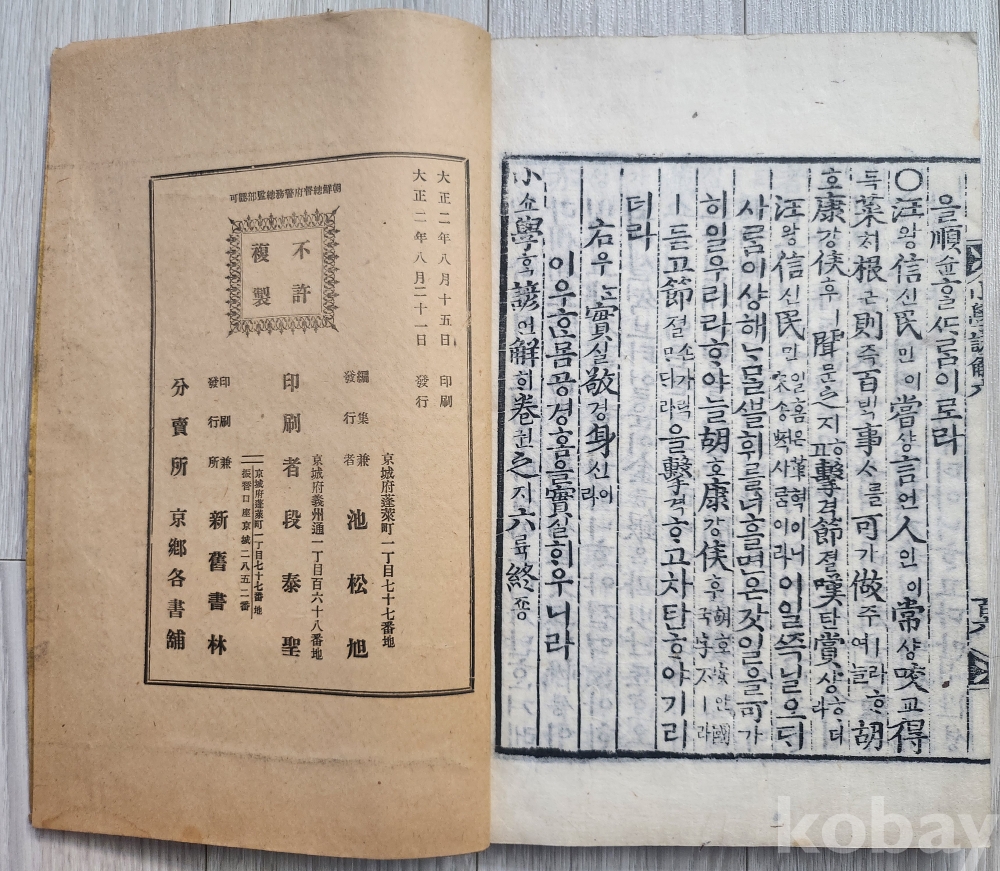 을順슌홀사ᄅᆞᆷ이로라
○汪왕信신民민이嘗샹言언人인이常샹咬교得
득菜ᄎᆡ根근則즉百ᄇᆡᆨ事ᄉᆞ를可가做주ㅣ라ᄒᆞ여ᄂᆞᆯ胡
호康강侯후ㅣ聞문之지ᄒᆞ고擊격節졀嘆탄賞샹ᄒᆞ더라
汪왕信신民민일홈은革혁이니宋송적사ᄅᆞᆷ이라이일즉닐오ᄃᆡ
사ᄅᆞᆷ이샹해ᄂᆞᄆᆞᆯᄲᅮᆯ휘를너흘면온갓일을可가
히일우리라ᄒᆞ야ᄂᆞᆯ胡호康강侯후胡호安안國국字ᄌᆞㅣ라
ㅣ듣고節졀을擊격ᄒᆞ고차탄ᄒᆞ야기리
더라
右우ᄂᆞᆫ實실敬경身신이라
이우ᄒᆞᆫ몸공경홈을實실히우니라
小쇼學ᄒᆞᆨ諺언解ᄒᆡ卷권之지六륙終죵
小學諺解六
大正二年八月十五日 印刷
大正二年八月二十一日 發行
朝鮮總督府警務總監部認可
不許
複製
京城府蓬萊町一丁目七十七番地
編集兼
發行者 池松旭
京城府義州通一丁目百六十八番地
印刷者 段泰聖
京城府蓬萊町一丁目七十七番地
振替口座京城二八五二番
印刷兼
發行所 新舊書林
分賣所 京鄕各書舖
kobay